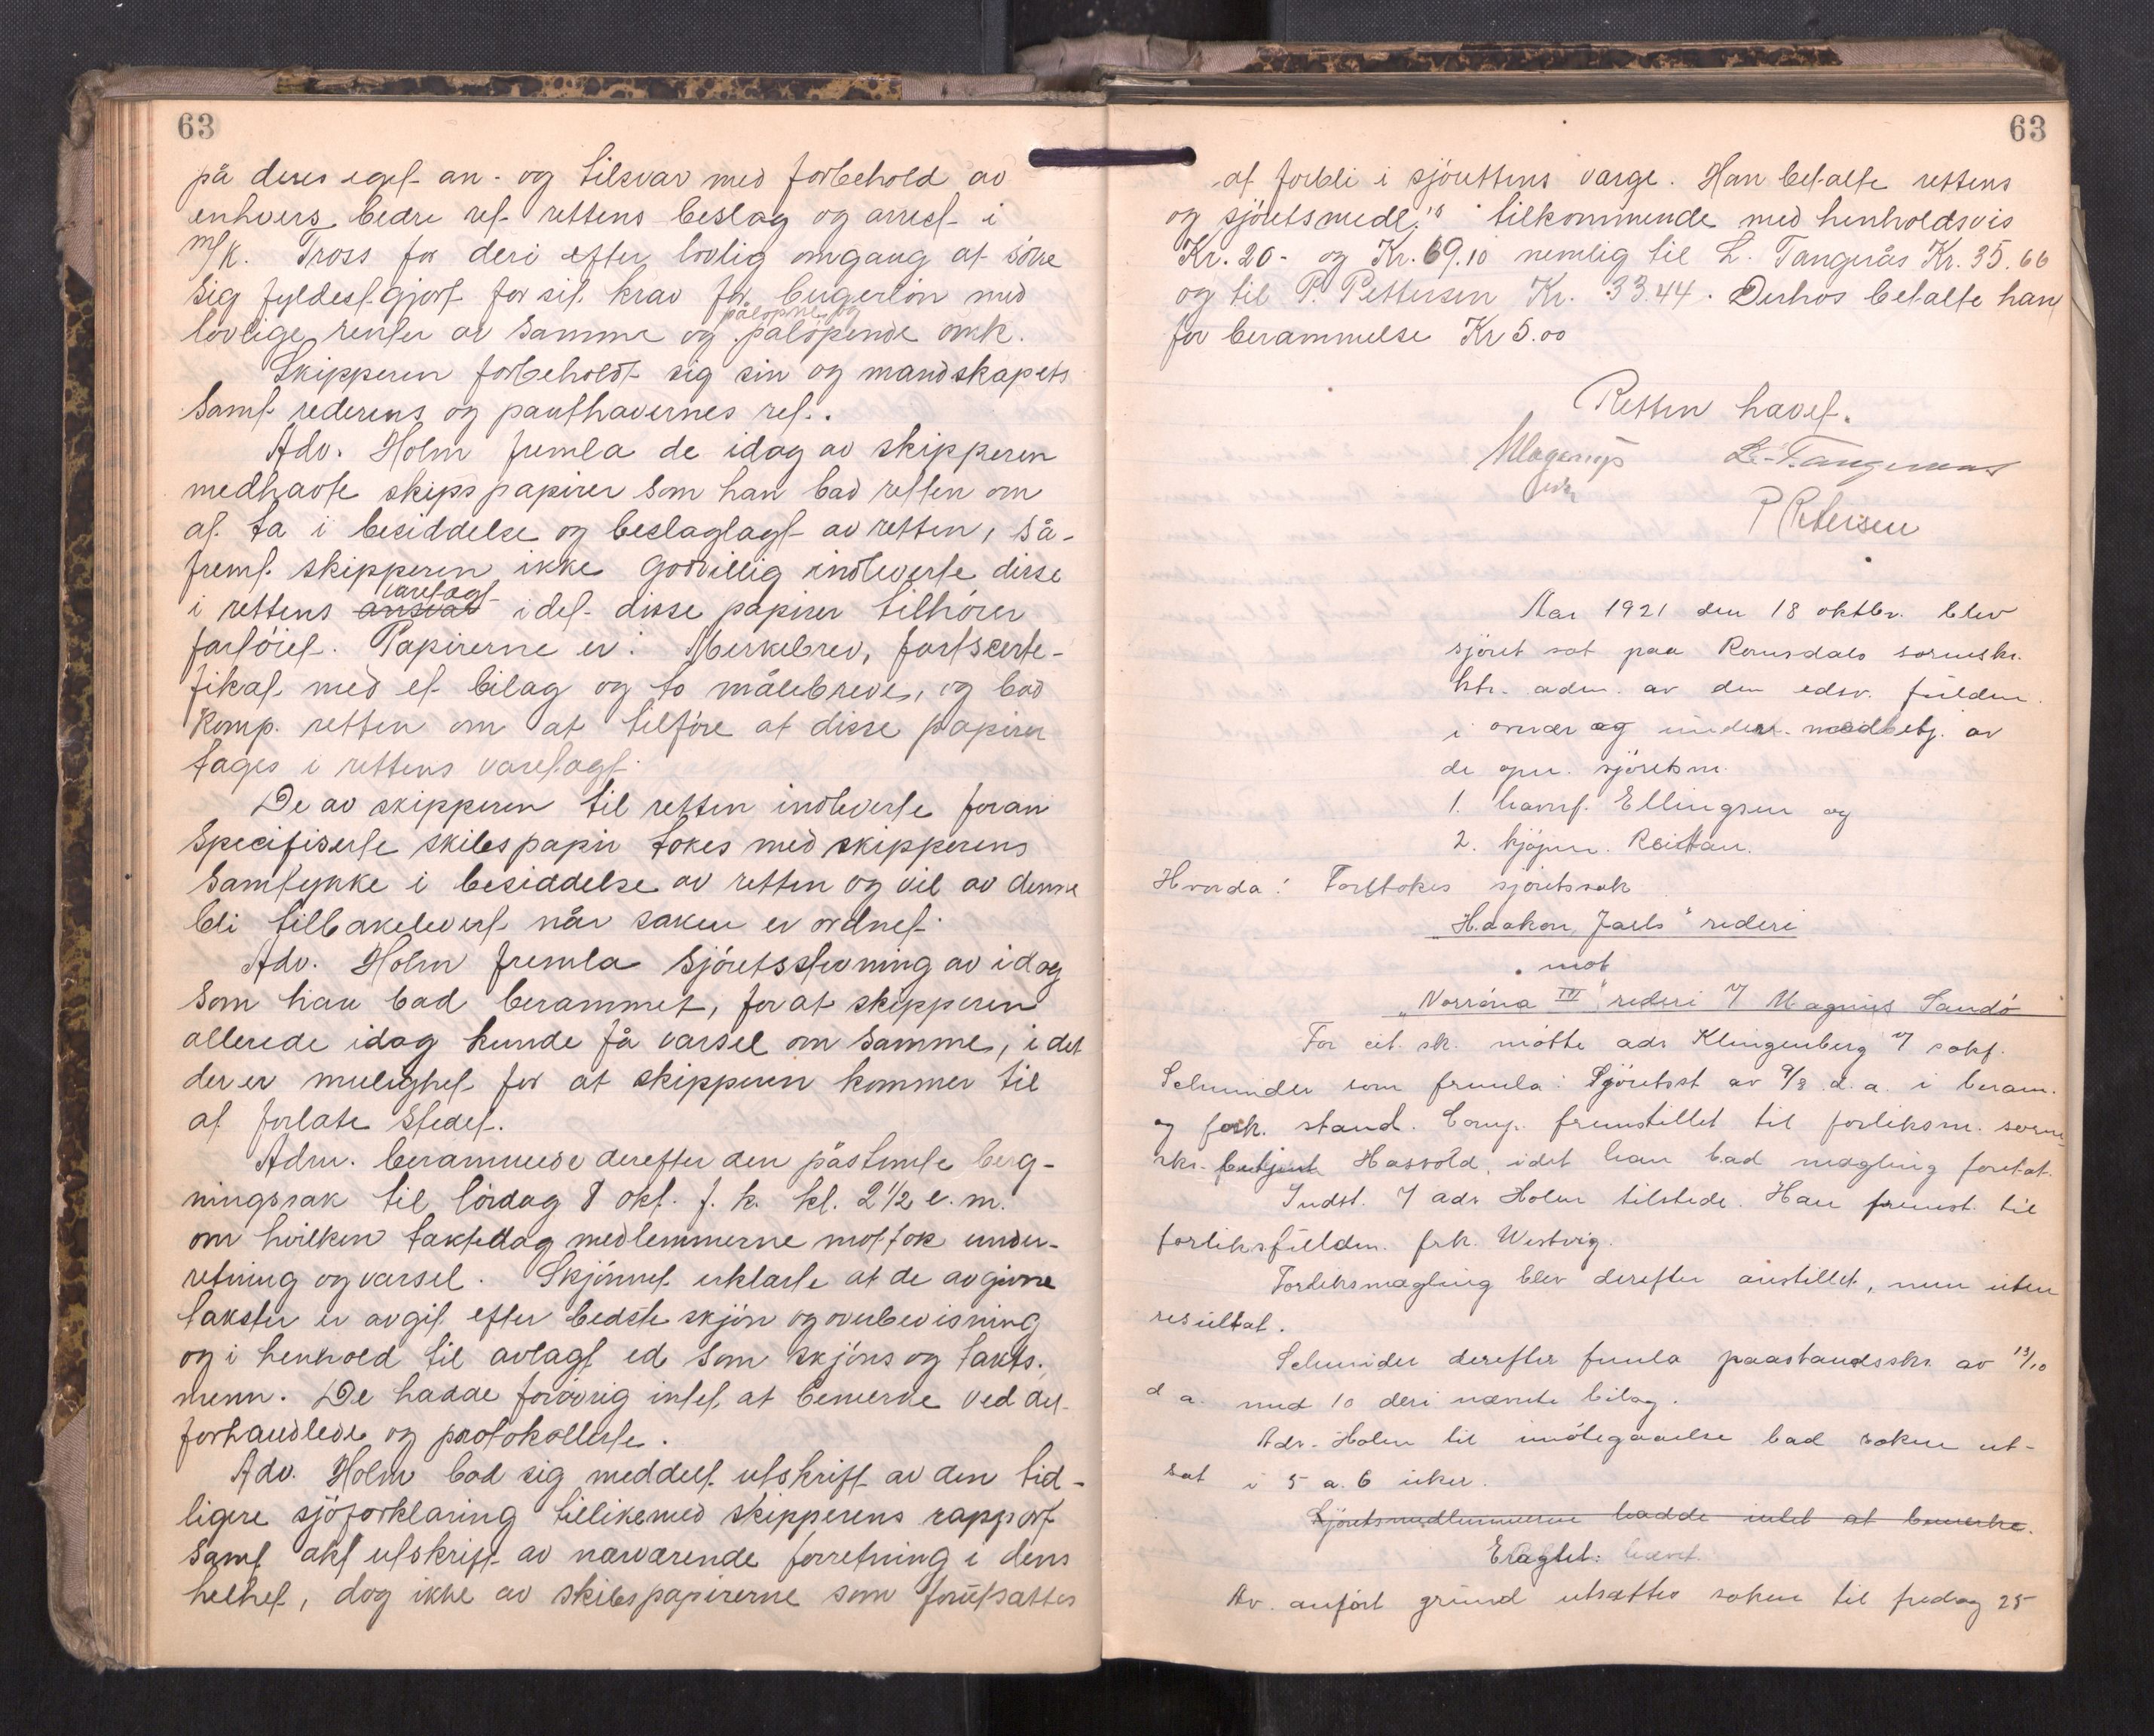 63
på deres eget an- og tilsvar med forbehold av
enhvers bedre ret rettens beslag og arrest i
m/k. Tross for deri efter lovlig omgang at søke
sig fyldestgjort for sit krav for bergerløn med
påløpne og
lovlige renter av samme og påløpende omk.
Skipperen forbeholdt sig sin og mandskapets
samt rederens og panthavernes ret.
Adv. Holm fremla de idag av skipperen
medhavte skipspapirer som han bad retten om
at ta i besiddelse og beslaglagt av retten, så-
fremt skipperen ikke godvillig indleverte disse
varetægt
i rettens ansvar idet disse papirer tilhører
fartøiet. Papirerne er: Merkebrev, fartscerte-
fikat med et bilag og to målebreve, og bad
komp. retten om at tilføre at disse papirer
tages i rettens varetagt.
De av skipperen til retten indleverte foran
specifiserte skibspapir tokes med skipperens
samtykke i besiddelse av retten og vil av denne
bli tilbakelevert når saken er ordnet.
Adv. Holm fremla sjøretsstevning av idag
som han bad berammet, for at skipperen
allerede idag kunde få varsel om samme, idet
der er mulighet for at skipperen kommer til
at forlate stedet.
Adm. berammede derefter den påstemte berg-
ningssak til lørdag 8 okt. f. k. kl. 2 1/2 e.m.
om hvilken taktedag medlemmerne mottok under-
retning og varsel. Skjønnet erklærte at de avgivne
takster er avgit efter bedste skjøn og overbevisning
og i henhold til avlagt ed som skjøns og takts.
menn. De hadde forøvrig intet at bemerke ved det
forhandlede og protokollerte.
Adv. Holm bad sig meddelt utskrift av den tid-
ligere sjøforklaring tillikemed skipperens rapport
samt akt utskrift av nærværende forretning i dens
helhet, dog ikke av skibspapirerne som forutsattes
63
at forbli i sjørettens varge. Han betalte rettens
og sjøretsmedl.'s tilkommende med henholdsvis
Kr. 20- og Kr. 69.10 nemlig til L. Tangerås Kr. 35.66
og til P. Pettersen Kr. 33.44. Derhos betalte han
for berammelse Kr 5.00
Retten hævet.
L. Tangeraas
P Petersen
Aar 1921 den 18 oktbr. blev
sjøret sat paa Romsdals sorenskr.
ktr. adm. av den edsv. fuldm.
i overvær og under medbetj. av
de opn. sjøretsm.
1. havnef. Ellingsen og
2. kjøpm. Reistan.
Hvorda: Foretokes sjøretssak
"Haakon Jarls" rederi
mot
"Norrøna III" rederi v/ Magnus Sandø
For cit. sk. møtte adv Klingenberg v/ sakf.
Schmider som fremla: Sjøretsst av 9/8 d.a. i beram.
og fork. stand. Comp. fremstillet til forliksm. soren-
skr. Hasvold, idet han bad mægling foretat.
Indst. v/ adv Holm tilstede. Han fremst. til
forliksfuldm. frk. Westvig.
Forliksmægling blev derefter anstillet, men uten
resultat.
Schmider derefter fremla paastandsskr. av 13/10
d a. med 10 deri nævnte bilag.
Adv. Holm til imøtegaaelse bad saken ut-
sat i 5 a. 6 uker.
Sjøretsmedlemmerne hadde intet at bemerke.
Eragtet: hævet.
Av anført grund utsættes saken til fredag 25